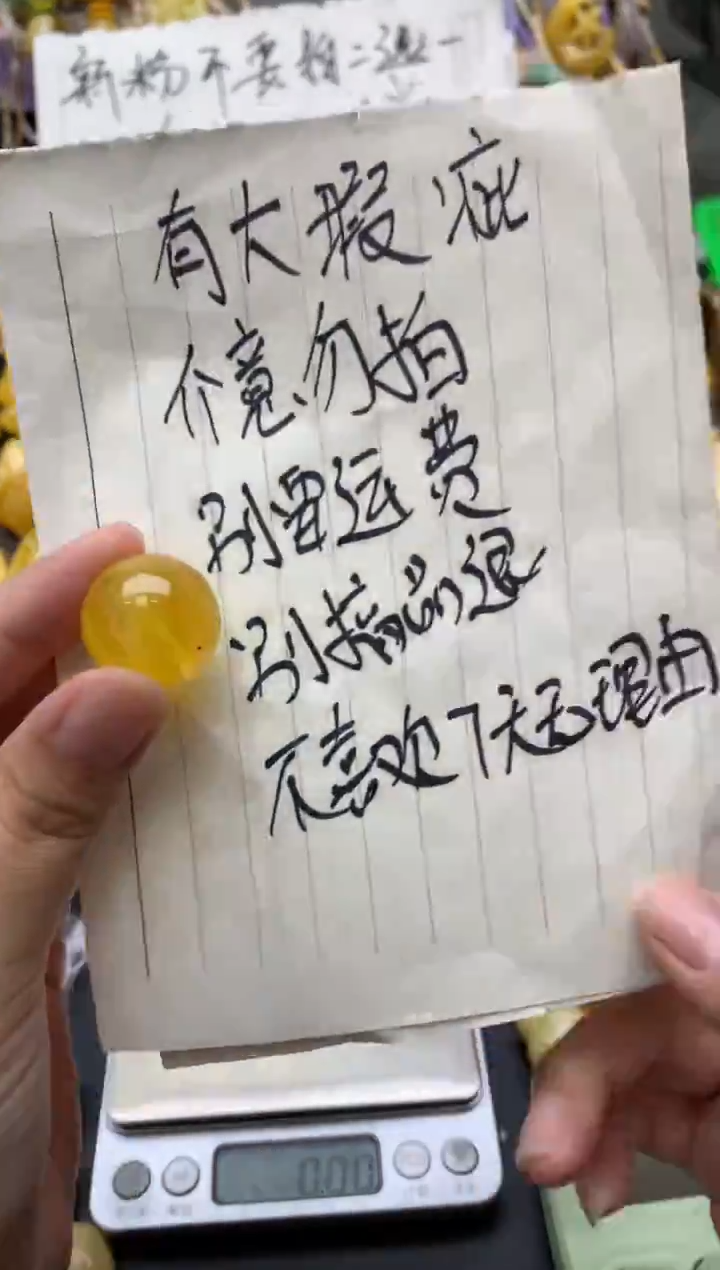 新粉不要拍二选一
有大瑕疵
介意勿拍
别要运费
别搞品退
不喜欢7天无理由
0.00